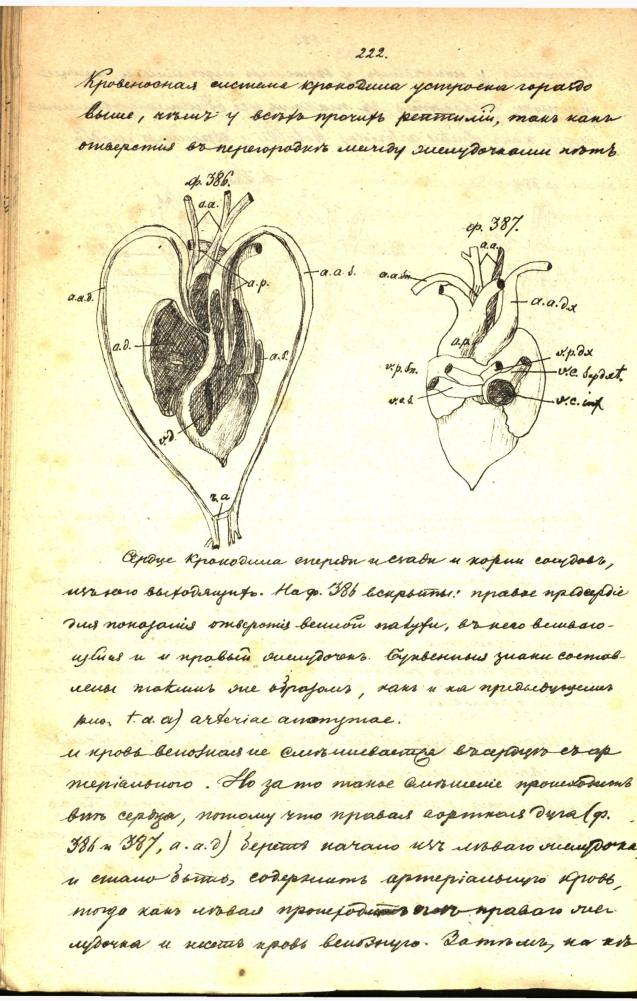 222.
Кровеносная система крокодила устроена гораздо
выше, чѣмъ у всѣхъ прочихъ рептилій, такъ какъ
отверстія въ перегородкѣ между желудочками нѣтъ
ф. 386.
a.a.
ф. 387.
a.a.
a.a.s.
a.a.sn.
a.p.
a.a.d.
a.a.дх
a.d.
a.s.
a.p.
v.p.sn.
v.p.дх
v.c.s.
v.c. inf
v.d.
r.a
Сердце крокодила спереди и сзади и корни сосудовъ,
изъ него выходящихъ. На ф. 386 вскрыты: правое предсердіе
для показанія отверстія венной пазухи, въ него
и правый желудочекъ. Буквенные знаки состав-
лены такимъ же образомъ, какъ и на предыдущемъ
a.a) arteriae anonymae.
и кровь венозная не смѣшивается въ сердцѣ съ ар
теріальною. Но за то такое смѣшеніе происходитъ
внѣ сердца, потому что правая аортная дуга (ф.
386 и 387, a.a.d) беретъ начало изъ лѣваго желудочка
и стало быть, содержитъ артеріальную кровь,
тогда какъ лѣвая происходитъ изъ праваго же-
лудочка и несетъ кровь венозную. Затѣмъ, на